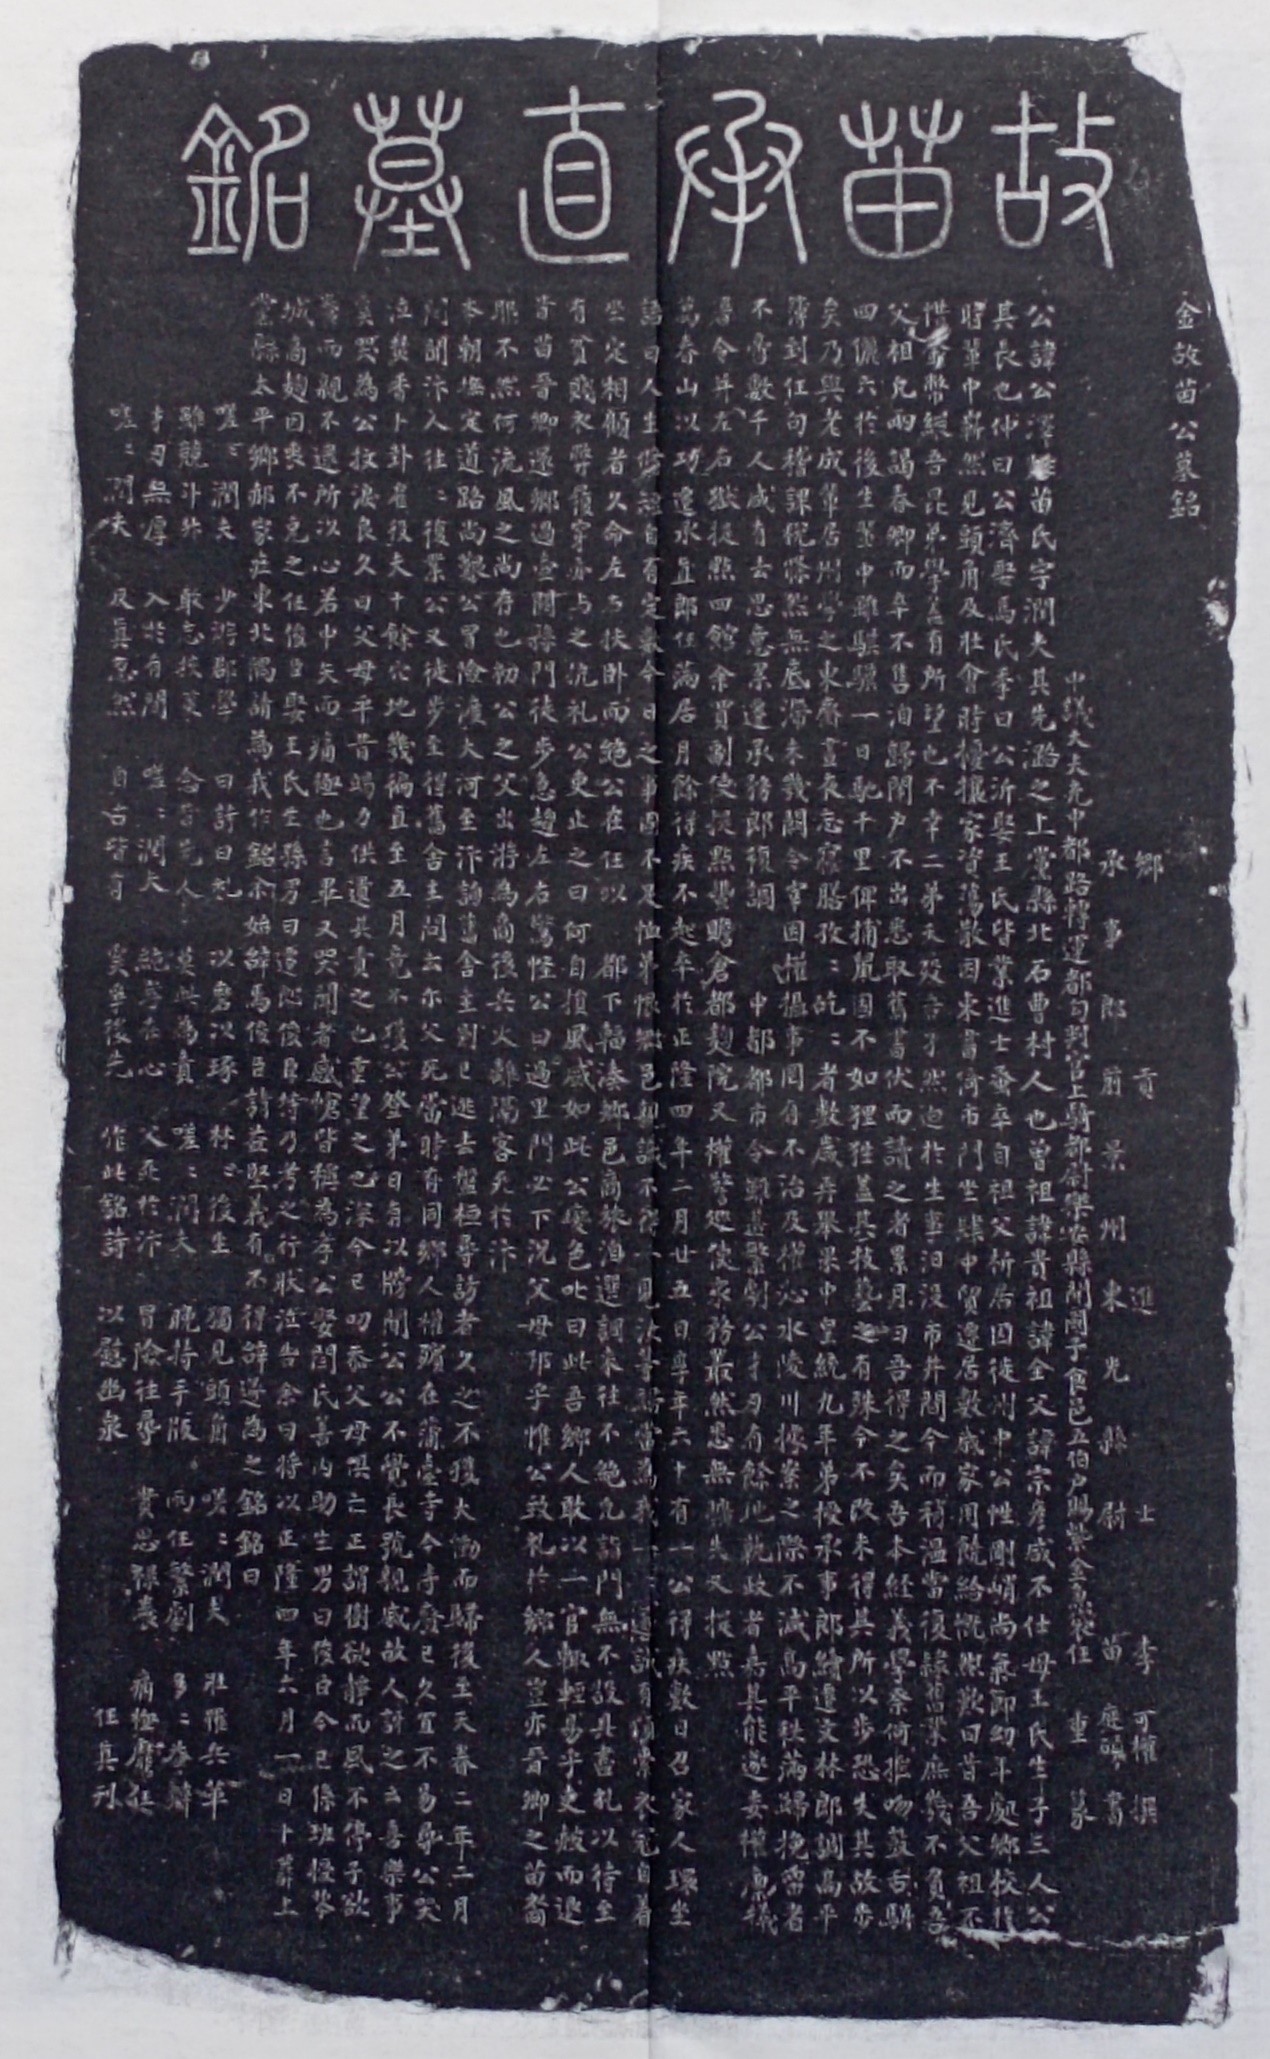 故苗承直墓銘
金故苗公墓銘
鄉貢進士李可權撰
承事郎前景州東光縣尉苗 書
中議大夫充中都路轉運都勾判官上騎都尉樂安縣開國子食邑五伯戶賜紫金魚袋任 重篆
公諱公澤 苗氏字潤夫其先潞之上黨縣北石曹村人也曾祖諱貴祖諱全父諱宗彥咸不仕母王氏生子三人公
其長也仲曰公濟娶馬氏季曰公沂娶王氏皆業進士蚤卒自祖父析居因徙州中公性剛峭尚氣節幼年處鄉校行
時輩中嶄然見頭角及壯會時擾攘家資蕩散因束書倚市門坐肆中貿遷居數歲家用隨給慨然歎曰昔吾父祖不
惟 幣繒吾昆弟學蓋有所望也不幸二弟夭歿吾孑然迫於生事汩沒市井間今而稍溫當復緣舊業庶幾不負吾
父相兄兩謁春卿而卒不售洎歸閉戶不出悉取舊書伏而讀之者累月曰吾得之矣吾本經義學奈何推吻鼓舌騈
四儷六於後生輩中雖騏驥一日馳千里俾捕鼠固不如狸狌蓋其技藝之有殊令不改求得其所以步恐失其故步
矣乃與老成輩居州學之東齋晝夜忘寢膳孜孜矻矻者數歲再舉果中皇統九年第授承事郎繪遷文林郎調高平
簿到任句稽課稅 然無底滯未幾闕令宰因權攝事罔有不治及權沁水陵川據案之際不減高平秩滿歸挽留者
不啻數千人咸有去思意累遷承務郎預調 中都都市令顯益繁劇公才力有餘地執政者嘉其能遂委權
署令并左右獄提點四館余買副使提點豐贍倉都麴院又權警巡使眾務叢然悉無 失又提點
萬春山以功遷承直郎任滿居月餘得疾不起卒於正隆四年二月廿五日享年六十有一公得疾數日召家人環坐
語曰人生 自有定數今日之事固不足恤弟恨鄉邑親識不得一見
坐定相顧者久命左右扶卧而絶公在任以 都下輻湊鄉邑商旅洎選調來往不絶凡詣門無不設具書札以待至
有貧賤衣弊履穿亦與之抗礼公吏止之曰何自損風威如此公變色叱曰此吾鄉人敢以一官輒輕易乎吏赧而退
昔苗晋卿還鄉過壺關擁門徒步急趨左右驚怪公曰過里門必下況父母邦乎惟公致礼於鄉人豈亦晋卿之苗裔
耶不然何流風之尚存也初公之父出游為商後兵火離隔客死於汴
本朝撫定道路尚艱公冒險渡大河至汴詢舊舍主則已逃去盤桓尋訪者久之不獲大慟而歸後至天眷二年二月
間聞汴人往往復業公又徒步至得舊舍主問云尔父死當時有同鄉人權殯在蒲臺寺今寺廢已久宜不易尋公哭
泣焚香卜卦雇役夫十餘穴地幾徧直至五月竟不獲公登第日有以牓聞公公不覺長號親戚故人訃之云喜樂事
奚哭為公抆淚良久曰父母平昔竭力供遺其責之也重望之也深今已叨忝父母俱亡正謂樹欲靜而風不停子欲
養而親不逮所以心若中矢而痛極也言畢又哭聞者感愴皆稱為孝公娶閆氏善内助生男曰俊臣今已係班
城商麹因喪不克之任俊臣娶王氏生孫男曰 俊臣等乃考之行狀泣告余曰將以正隆四年六月一日卜葬上
黨縣太平鄉郝家莊東北隅請為我作銘余始辭焉俊臣請益堅義有不得辭遂為之銘銘曰
嗟嗟潤夫 少游郡學 日討日礼 以磨以琢 林林後生 獨見頭角 嗟嗟潤夫 壯罹兵革
雖競斗升 敢忘 念昔先人 莫與為責 嗟嗟潤夫 晚持手版 兩任繁劇 多多益辦
才刃無厚 入於有間 嗟嗟潤夫 純孝在心 父死於汴 冒險往尋 貴思祿養 痛極
嗟嗟潤夫 及真忽然 自古皆有 奚爭後先 作此銘詩 以慰幽泉
任真刊